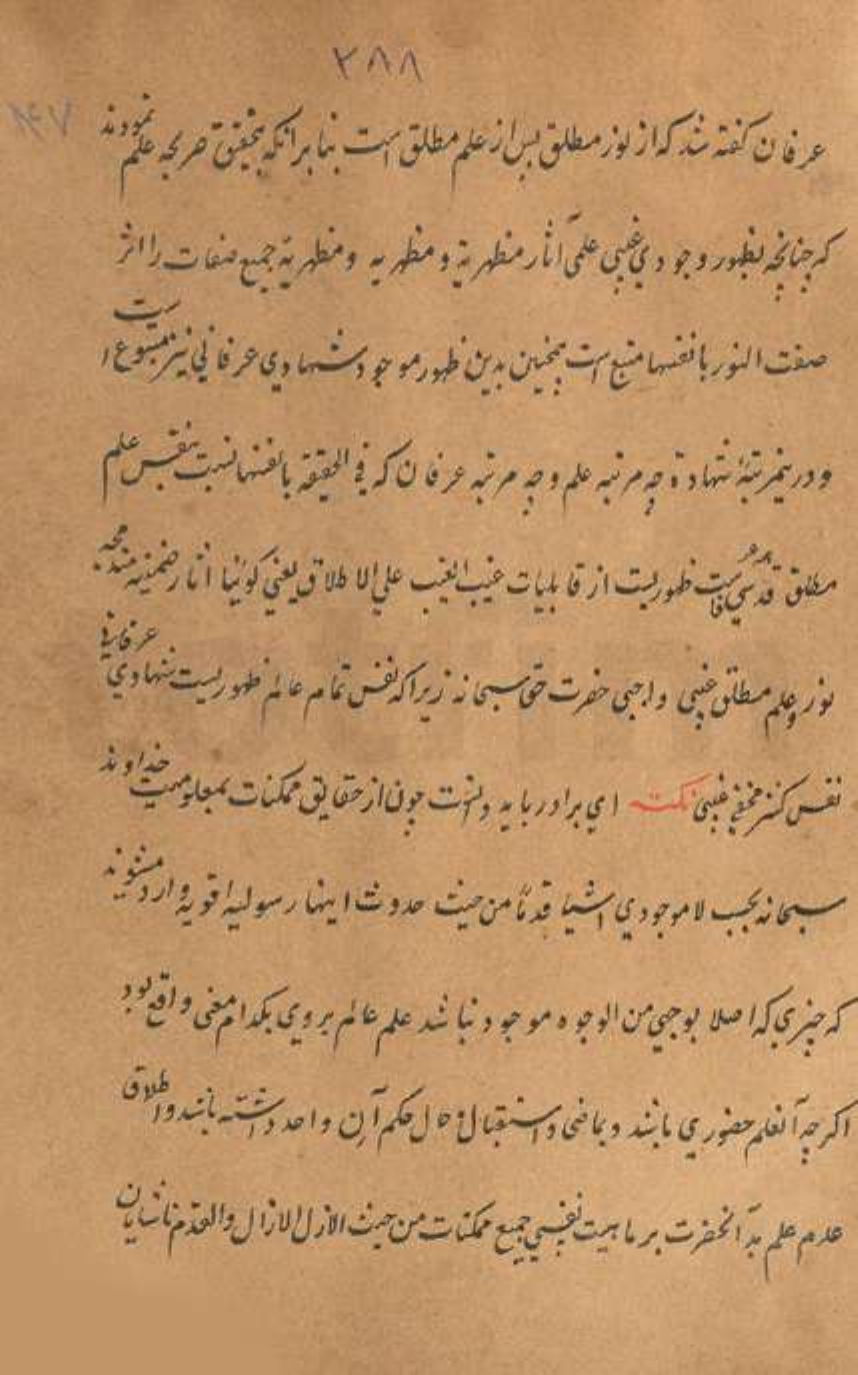 ۲۸۸
۸۴۷
عرفان گفته شد که از نور مطلق پس از علم مطلق است بنا بر آنکه بتحقیق هر یکه علم نمودند
که چنانچه بظهور وجودی غیبی علمی آثار مظهریة و مظهریه و مظهریة جمیع صفات را اثر
صفت النور بانفسها منبع است همچنین بدین ظهور موجود شهادی عرفانی نیز متبوع است
و درینمرتبهٔ شهادة چه مرتبه علم و چه مرتبه عرفان که فی الحقیقة بانفسها نسبت بنفس علم
مطلق قدسی است ظهوریست از قابلیات غیب الغیب علی الاطلاق یعنی گوئیا آثار ضمنیه مندمجه
نور و علم مطلق غیبی واجبی حضرت حق سبحانه زیرا که نفس تمام عالم ظهوریست شهادی عرفانی
نفس کنز مخفی غیبی نکته ای برادر باید دانست چون از حقایق ممکنات بمعلومیت خداوند
سبحانه بحسب لاموجودی اشیا قدمًا من حیث حدوث اینها رسولیه اقویه وارد میشوند
که چیزی که اصلا بوجهی من الوجوه موجود نباشد علم عالم بروی بکدام معنی واقع بود
اگرچه آنعلم حضوری باشد و بماضی و استقبال و حال حکم آن واحد داشته باشد و اطلاق
عدم علم بدآنحضرت بر ماهیت نفسی جمیع ممکنات من حیث الازل الازال والقدم ناشایان